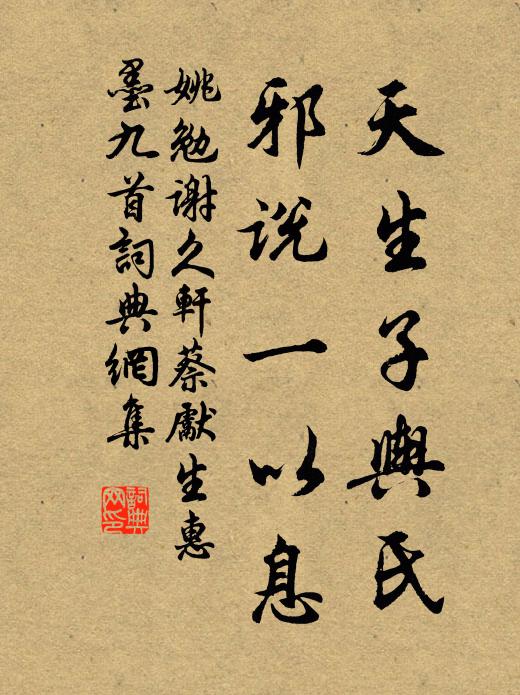 天生子輿氏
邪说一以息
姚勉谢久軒蔡獻生惠
墨九首詞典網集
詞典网印